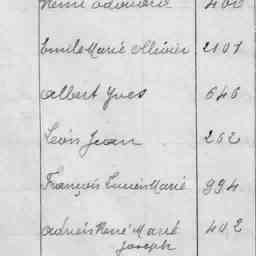 Henri Edouard 400
Emile Marie Ollivier 2107
Albert Yves 646
Léon Jean 262
François Lucien Marie 994
Adrien René Marie 402
Joseph